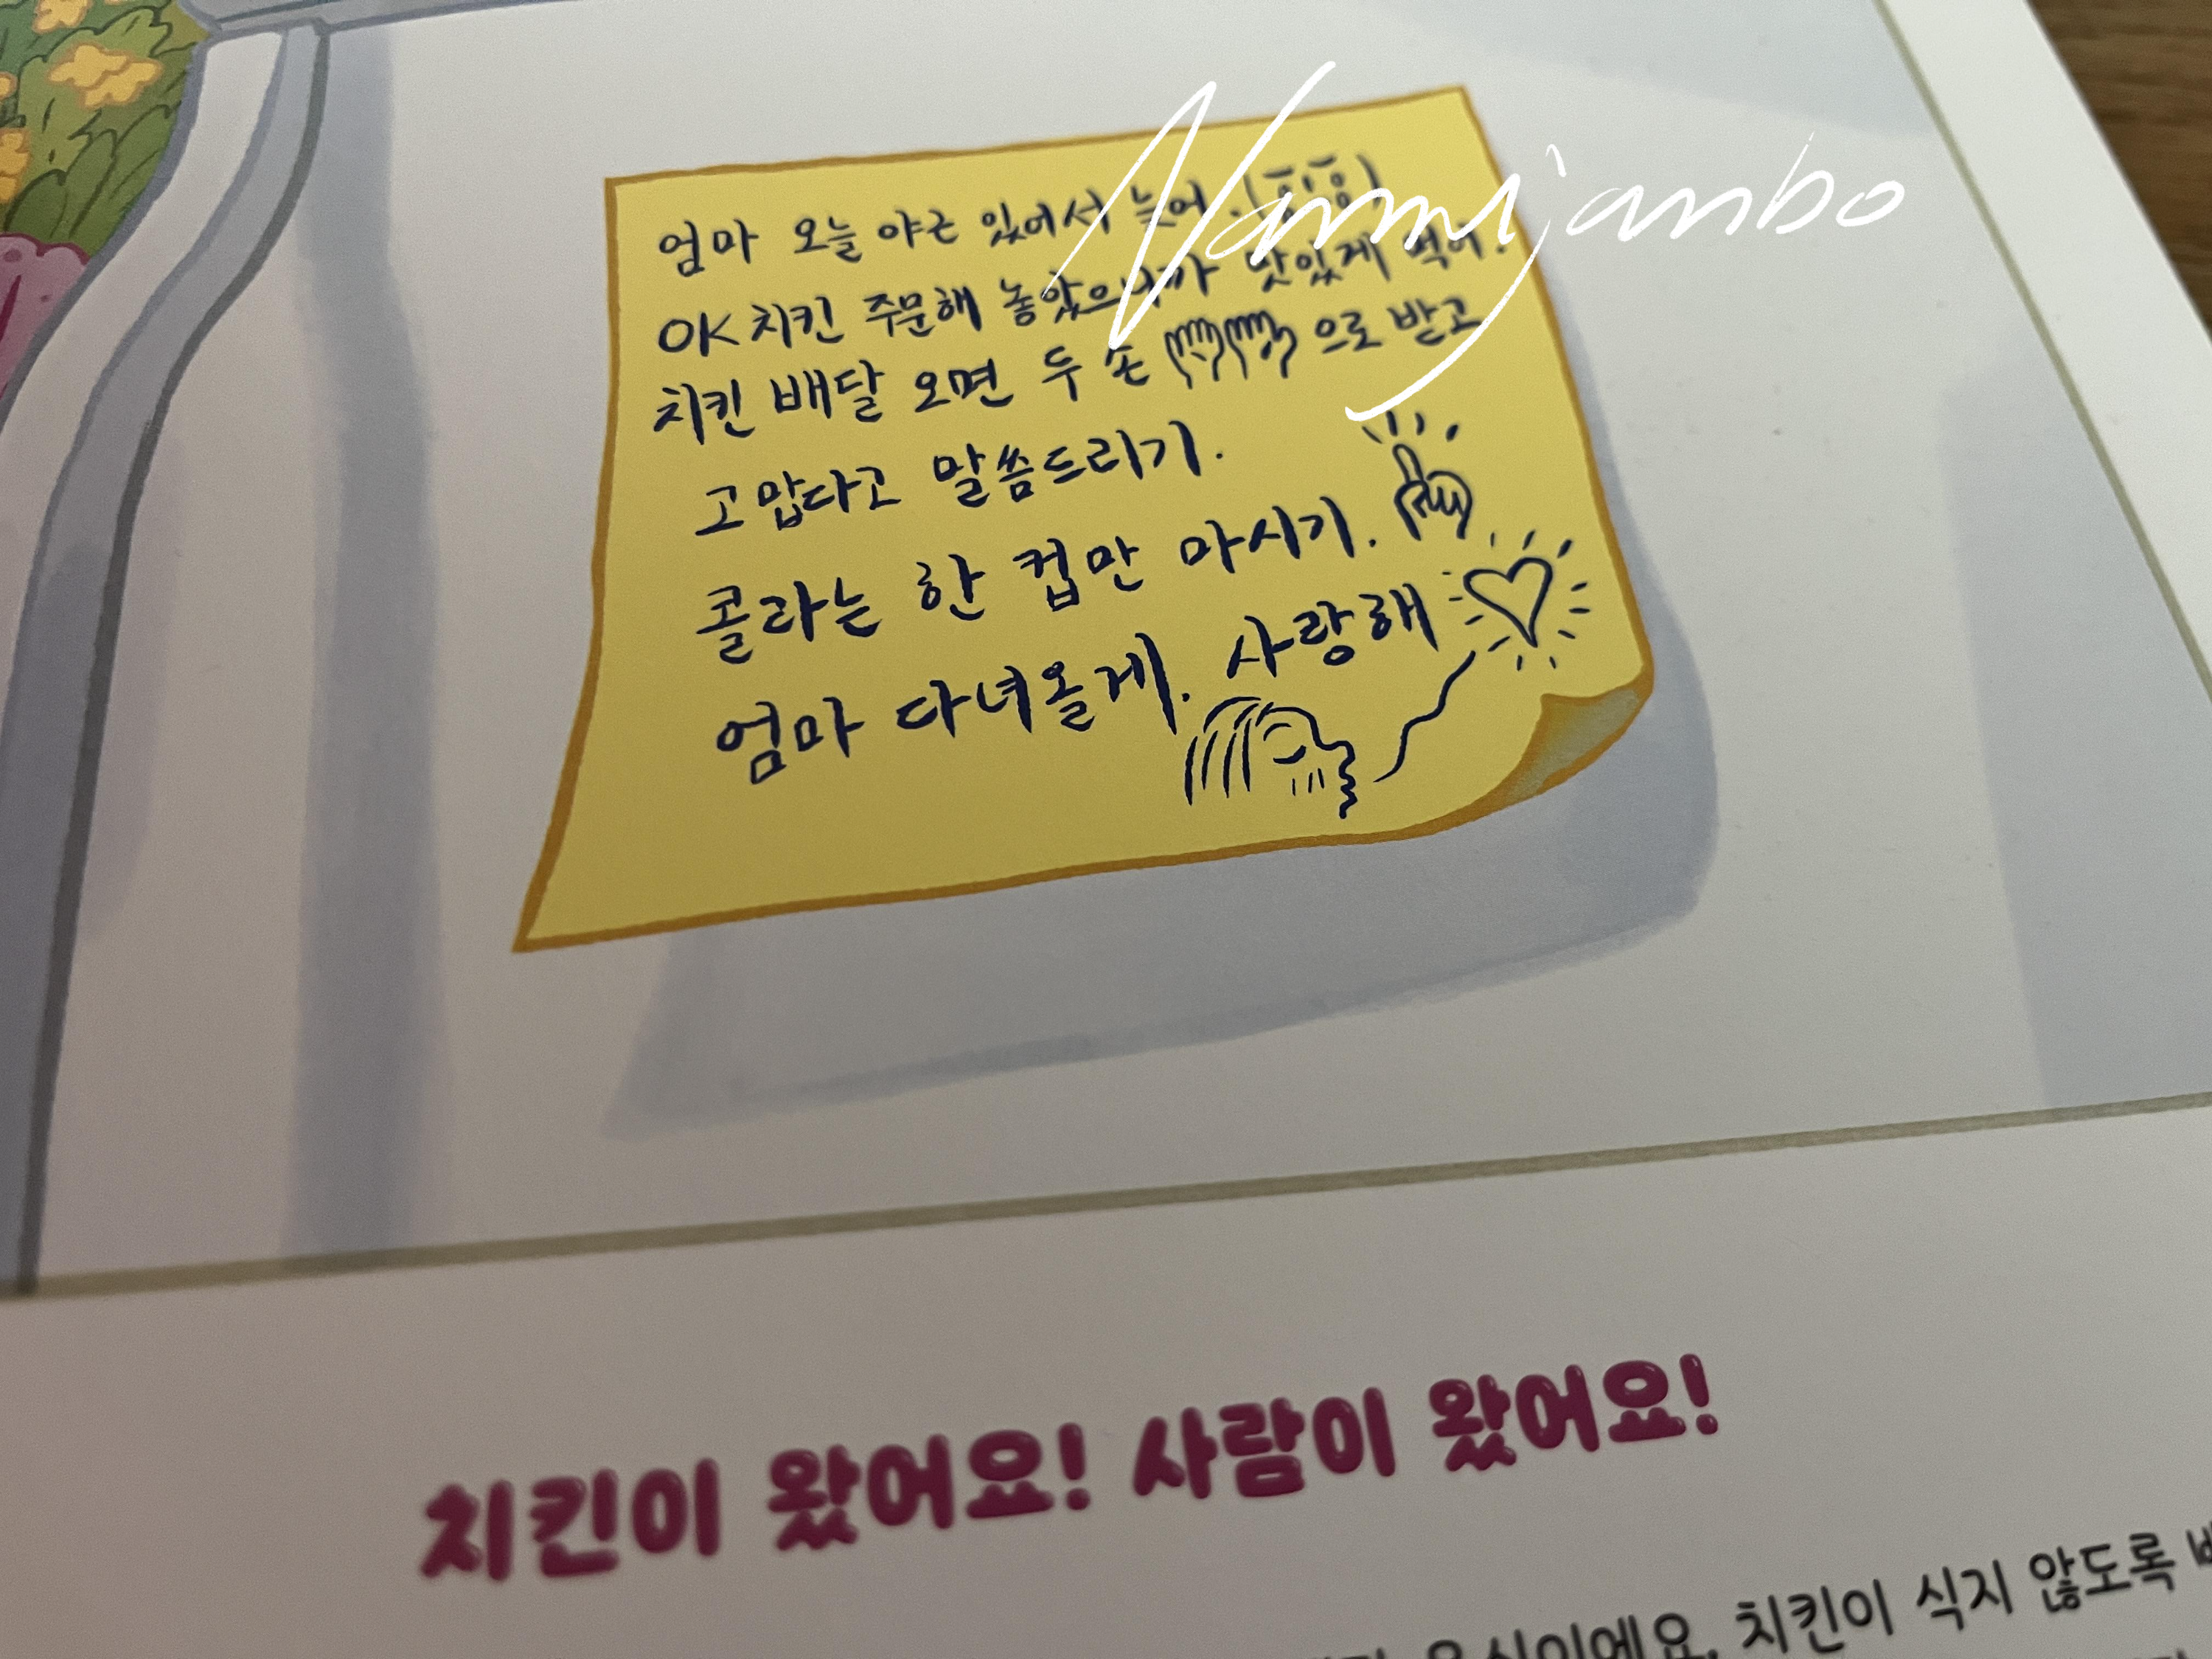 Nannijanbo
엄마 오늘 야근 있어서 늦어.(흥흥)
OK치킨 주문해 놓았으니까 맛있게 먹어!
치킨 배달 오면 두 손 으로 받고
고맙다고 말씀드리기.
콜라는 한 컵만 마시기.
엄마 다녀올게. 사랑해
치킨이 왔어요! 사람이 왔어요!
음식이에요. 치킨이 식지 않도록